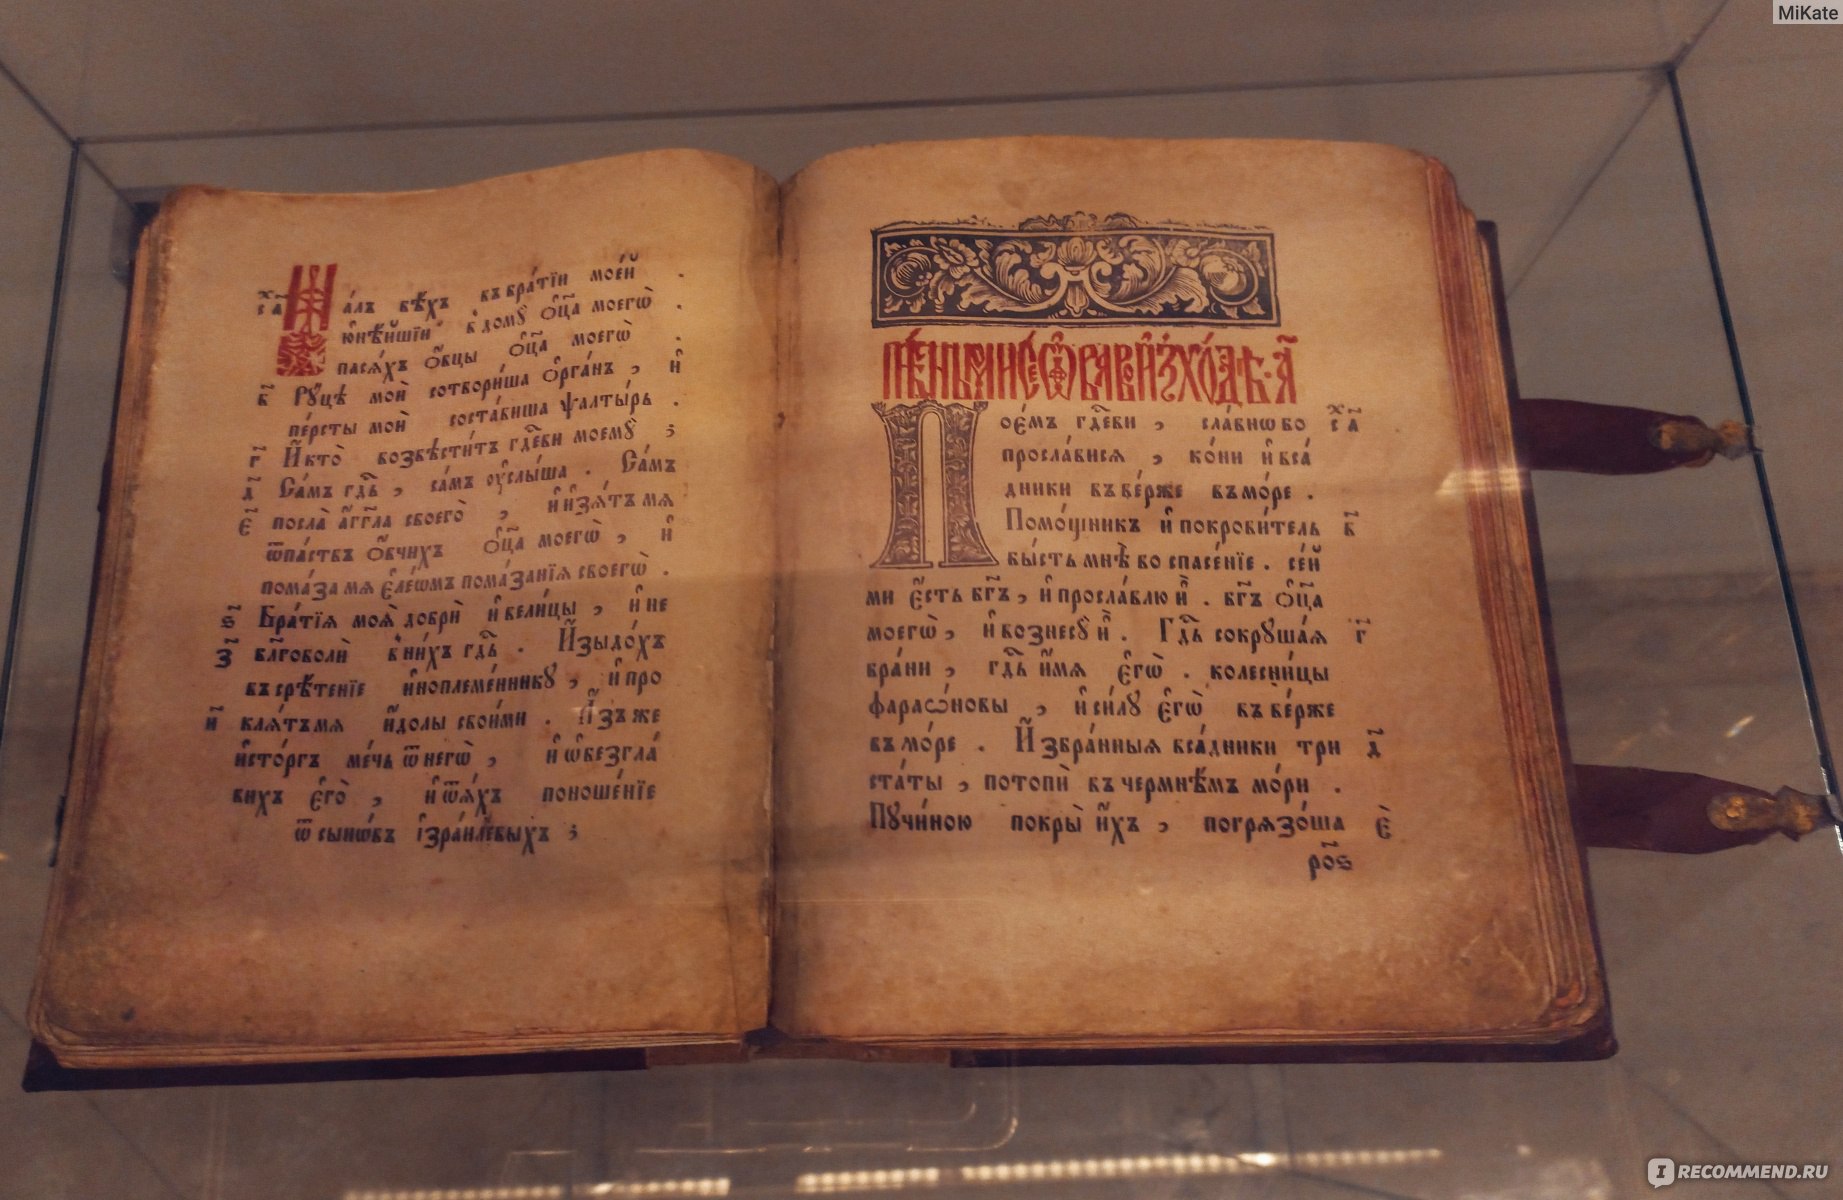 MiKate
с҃а Ма́лъ бѣ́хъ въ бра́тїи мое́й .
ю҆нѣ́йшїи в̾ дому̀ ѻ҆ц҃а̀ моегѡ̀ .
пася́хъ ѻ҆́вцы ѻ҆ц҃а̀ моегѡ̀ .
в҃ Ру́цѣ моѝ сотвори́ша ѻ҆рга́нъ , и҆
пе́рсты моѝ соста́виша ѱалты́рь .
г҃ И҆ кто̀ возвѣсти́тъ гд҇еви моемꙋ̀ ;
д҃ Са́мъ гд҇ь , са́мъ ᲂу҆слы́ша . Са́мъ
є҃ посла̀ а҆́гг҃ла своего̀ , и҆ и҆зя́тъ мя
ѿ па́ствъ ѻ҆́вчихъ ѻ҆ц҃а̀ моегѡ̀ , и҆
пома́за мя є҆ле́ѡмъ пома́занїѧ своегѡ̀ .
ѕ҃ Бра́тїѧ моѧ̀ добрѝ и҆ вели́цы , и҆ не
з҃ бл҃говолѝ в̾ ни́хъ гд҇ь . И҆зыдо́хъ
въ срѣ́тенїе и҆ноплеме́нникꙋ , и҆ про
и҃ кля́тъ мя и҆́долы свои́ми . А҆́зъ же
и҆сто́ргъ ме́чь ѿ него̀ , и҆ ѡ҆безгла́
вихъ є҆го̀ , и҆ ѿя́хъ поноше́нїе
ѿ сынѡ́въ і҆зра́илевыхъ ;
П оє́мъ гд҇еви , сла́вно бо с҃а
просла́вися , ко́ни и҆ вса́
дники въве́рже въ мо́ре .
Помо́щникъ и҆ покрови́тель в҃
бы́сть мнѣ̀ во спасе́нїе . се́й
ми є҆́сть бг҃ъ , и҆ просла́влю и҆̀ . бг҃ъ ѻ҆ц҃а̀
моегѡ̀ , и҆ вознесꙋ̀ и҆̀ . Гд҇ь сокрꙋша́ѧ г҃
бра́ни , гд҇ь и҆́мя є҆гѡ̀ . колесни́цы
фараѡ́новы , и҆ си́лꙋ є҆гѡ̀ въве́рже
въ мо́ре . И҆збра́нныѧ вса́дники три д҃
ста́ты , потопѝ въ чермнѣ́мъ мо́ри .
Пꙋчи́ною покры̀ и҆́хъ , погрязо́ша є҃
ро҃ѕ
RECOMMEND.RU